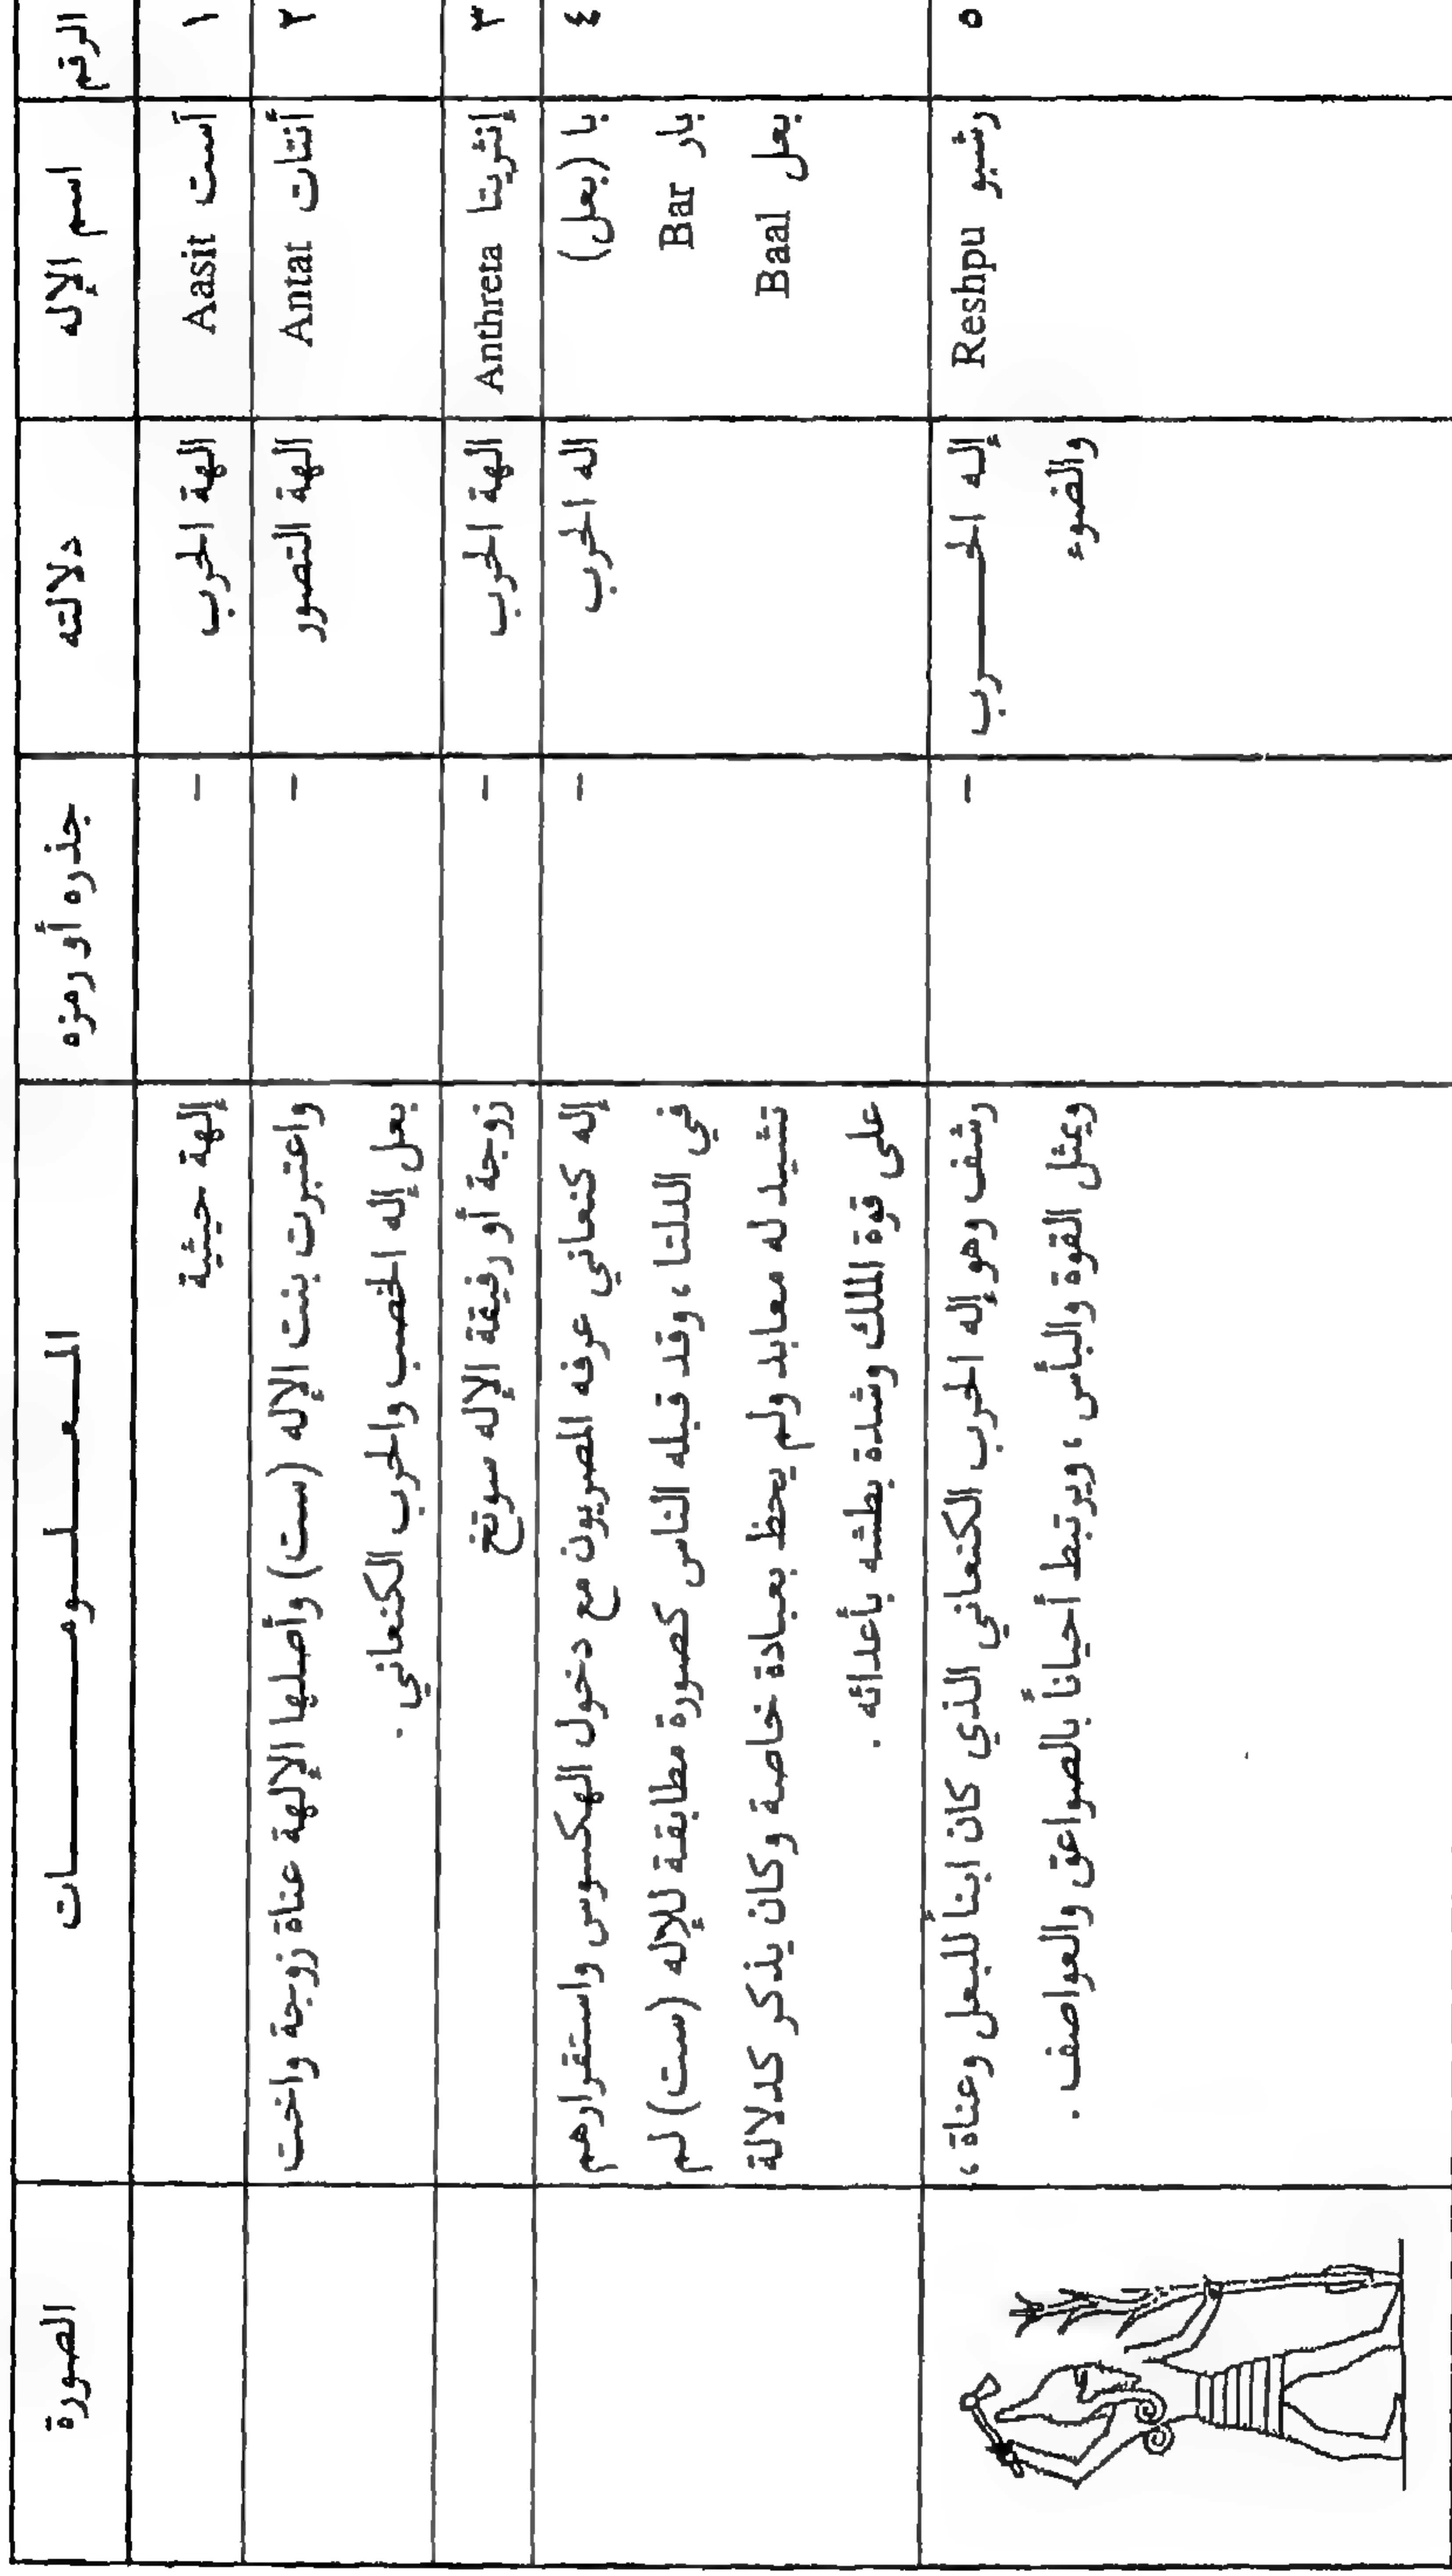 الرقم	اسم الإله	دلالته	جذره أو رمزه	المـعـلـومـــــات	الصورة
١	آست Aasit	الهة الحرب	-	إلهة حيثية
٢	أنتات Antat	الهة التصور	-	واعتبرت بنت الإله (ست) وأصلها الإلهة عناة زوجة واخت
بعل إله الخصب والحرب الكنعاني .
٣	إنثريتا Anthreta	الهة الحرب	-	زوجة أو رفيقة الإله سوتخ
٤	با (بعل)	اله الحرب	-	إله كنعاني عرفه المصريون مع دخول الهكسوس واستقرارهم
بار Bar	في الدلتا ، وقد قبله الناس كصورة مطابقة للإله (ست) لم
بعل Baal	تشيد له معابد ولم يحظ بعبادة خاصة وكان يذكر كدلالة
على قوة الملك وشدة بطشه بأعدائه .
٥	رشبو Reshpu	إله الحـــــرب	-	رشف وهو إله الحرب الكنعاني الذي كان ابناً للبعل وعناة ،
والضوء	ويمثل القوة والبأس ، ويرتبط أحياناً بالصواعق والعواصف .